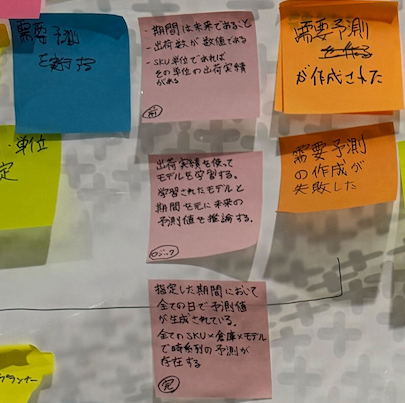 需要予測
を実行する
・期間は未来であること
・出荷数が数値である
・SKU単位であれば
その単位の出荷実績
がある
需要予測
が作成された
単位
定
出荷実績を使って
モデルを学習する。
学習されたモデルと
期間を元に未来の
予測値を推論する。
ロジック
需要予測
の作成が
失敗した
指定した期間において
全ての日で予測値
が生成されている。
全てのSKU×倉庫×モデル
で時系列の予測が
存在する
ランナー